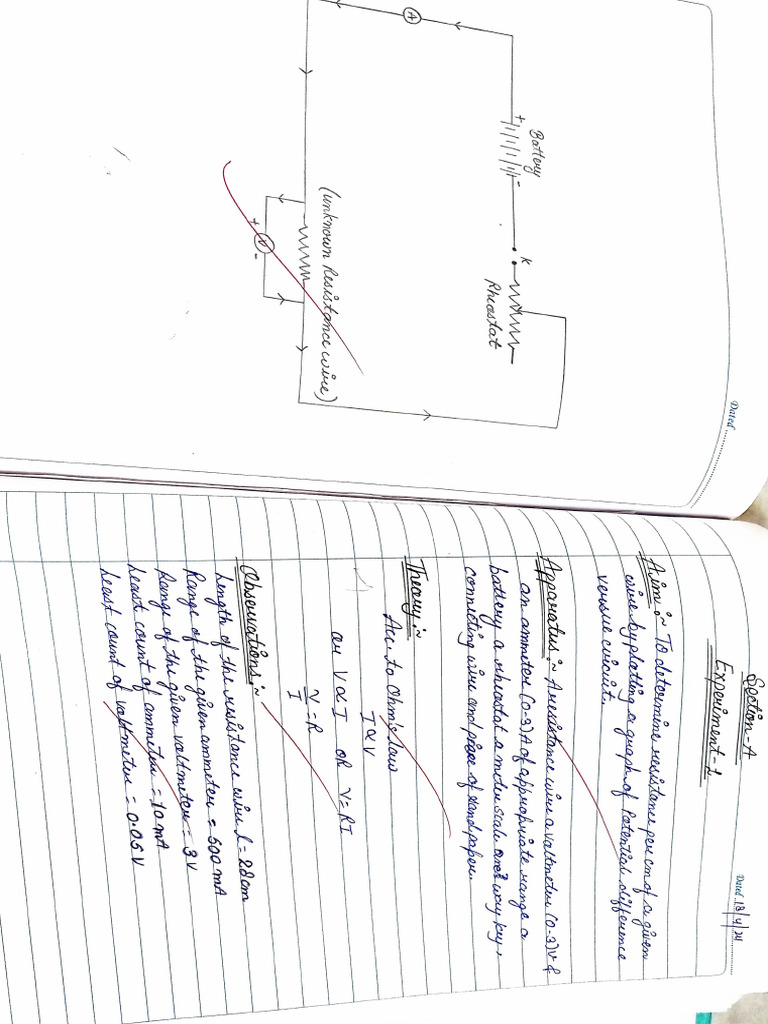 Dated
A
+
Battery
-
K
Rheostat
(unknown Resistance wire)
+ V -
Section-A
Dated 18/4/24
Experiment-1
Aim :~ To determine resistance per cm of a given
wire by plotting a graph of Potential difference
versus circuit.
Apparatus :~ A resistance wire a voltmeter (0-3)V &
an ammeter (0-3)A of appropriate range a
battery a rheostat a meter scale one way key,
connecting wire and piece of sand paper.
Theory :~
Acc. to Ohm's law
I ∝ V
or V ∝ I OR V = RI
V/I = R
Observations :~
Length of the resistance wire l = 28cm
Range of the given ammeter = 500 mA
Range of the given voltmeter = 3 V
Least count of ammeter = 10 mA
Least count of voltmeter = 0.05 V